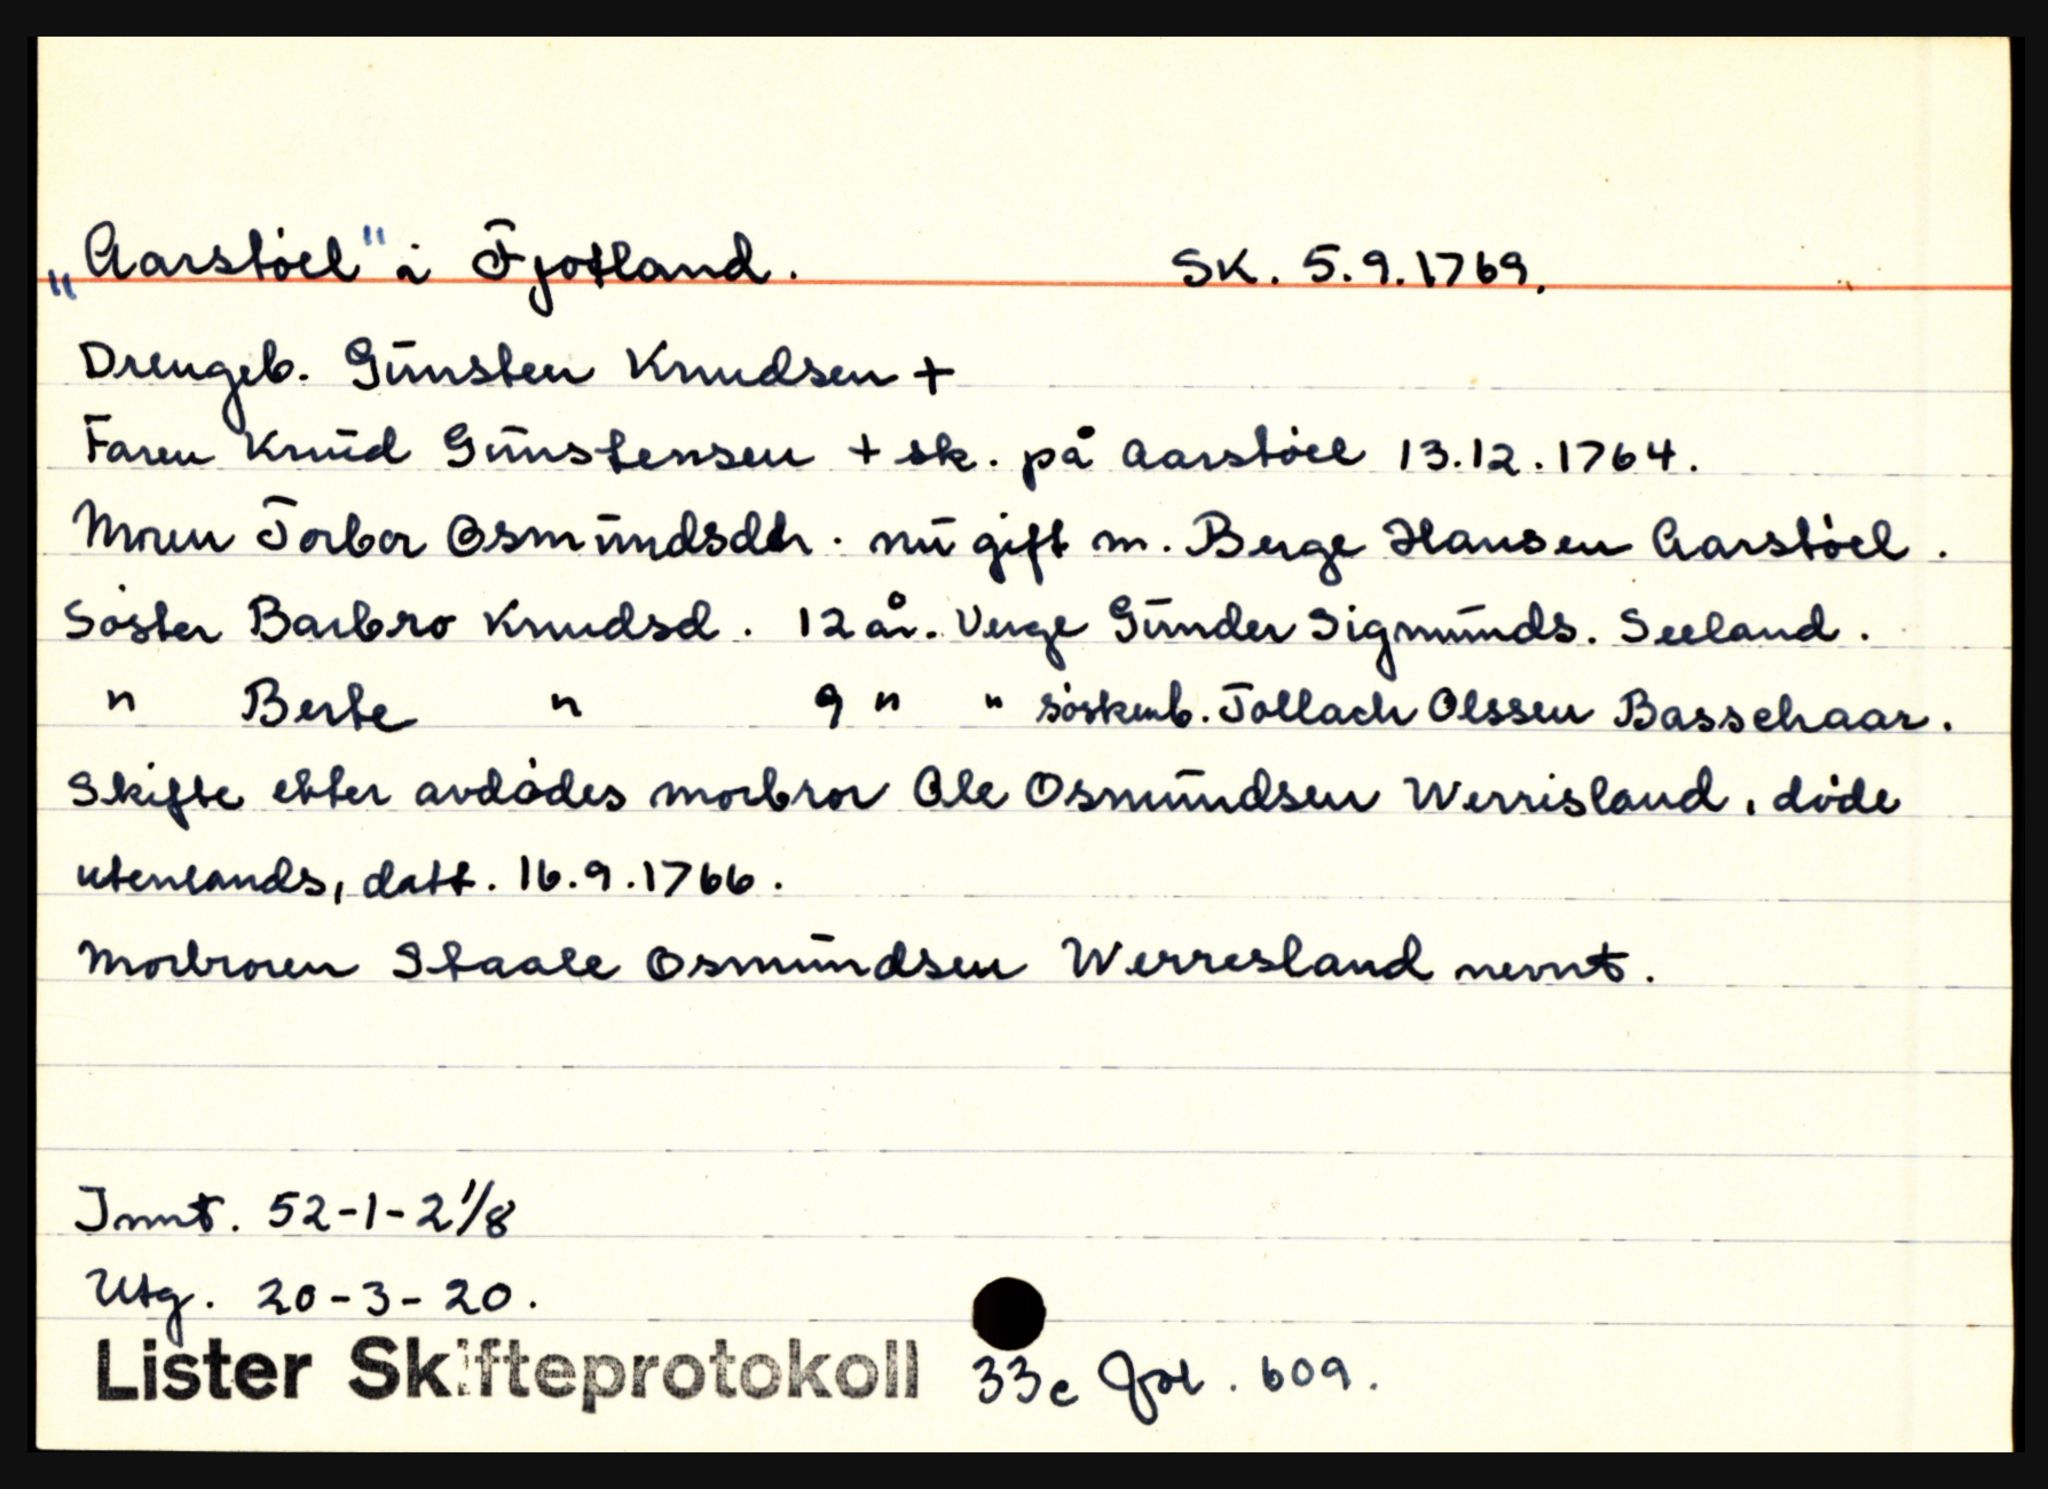 „Aarstöel" i Fjotland. SK. 5.9.1769.
Drengeb. Gunsten Knudsen +
Faren Knud Gunstensen + sk. på Aarstöel 13.12.1764.
Moren Torbor Osmundsdtr. nu gift m. Berge Hansen Aarstöel.
Söster Barbro Knudsd. 12 år. Verge Gunder Sigmunds. Seeland.
" Berte " 9 " " söskenb. Tollach Olssen Basschaar.
Skifte etter avdödes morbror Ole Osmundsen Werrisland, döde
utenlands, datt. 16.9.1766.
Morbroren Staale Osmundsen Werresland nevnt.
Innt. 52-1-2 1/8
Utg. 20-3-20.
Lister Skifteprotokoll 33c Fol. 609.